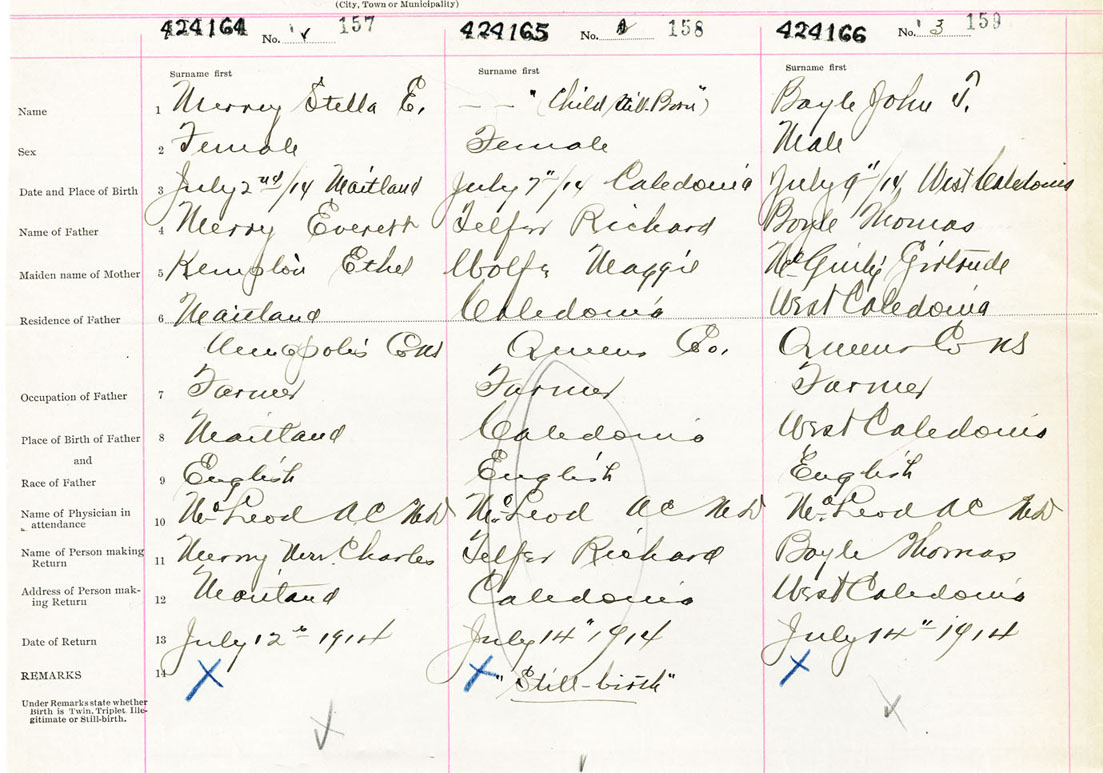 (City, Town or Municipality)
424164 No. 157 424165 No. 158 424166 No. 3 159
Surname first Surname first Surname first
Name 1 Merry Stella E. — — "(Child Still Born") Boyle John T.
Sex 2 Female Female Male
Date and Place of Birth 3 July 2nd/14 Maitland July 7th/14 Caledonia July 9th/14 West Caledonia
Name of Father 4 Merry Everett Telfer Richard Boyle Thomas
Maiden name of Mother 5 Kempton Ethel Wolfe Maggie Gertrude
Residence of Father 6 Maitland Caledonia West Caledonia
Co NS Queens Co. Queens Co NS
Occupation of Father 7 Farmer Farmer Farmer
Place of Birth of Father 8 Maitland Caledonia West Caledonia
and
Race of Father 9 English English English
Name of Physician in attendance 10 McLeod A C M D McLeod A C M D McLeod A C M D
Name of Person making Return 11 Merry Mrs. Charles Telfer Richard Boyle Thomas
Address of Person mak-ing Return 12 Maitland Caledonia West Caledonia
Date of Return 13 July 12th 1914 July 14" 1914 July 14" 1914
REMARKS 14 X X "Still-birth" X
Under Remarks state whether
Birth is Twin, Triplet, Ille-
gitimate or Still-birth.